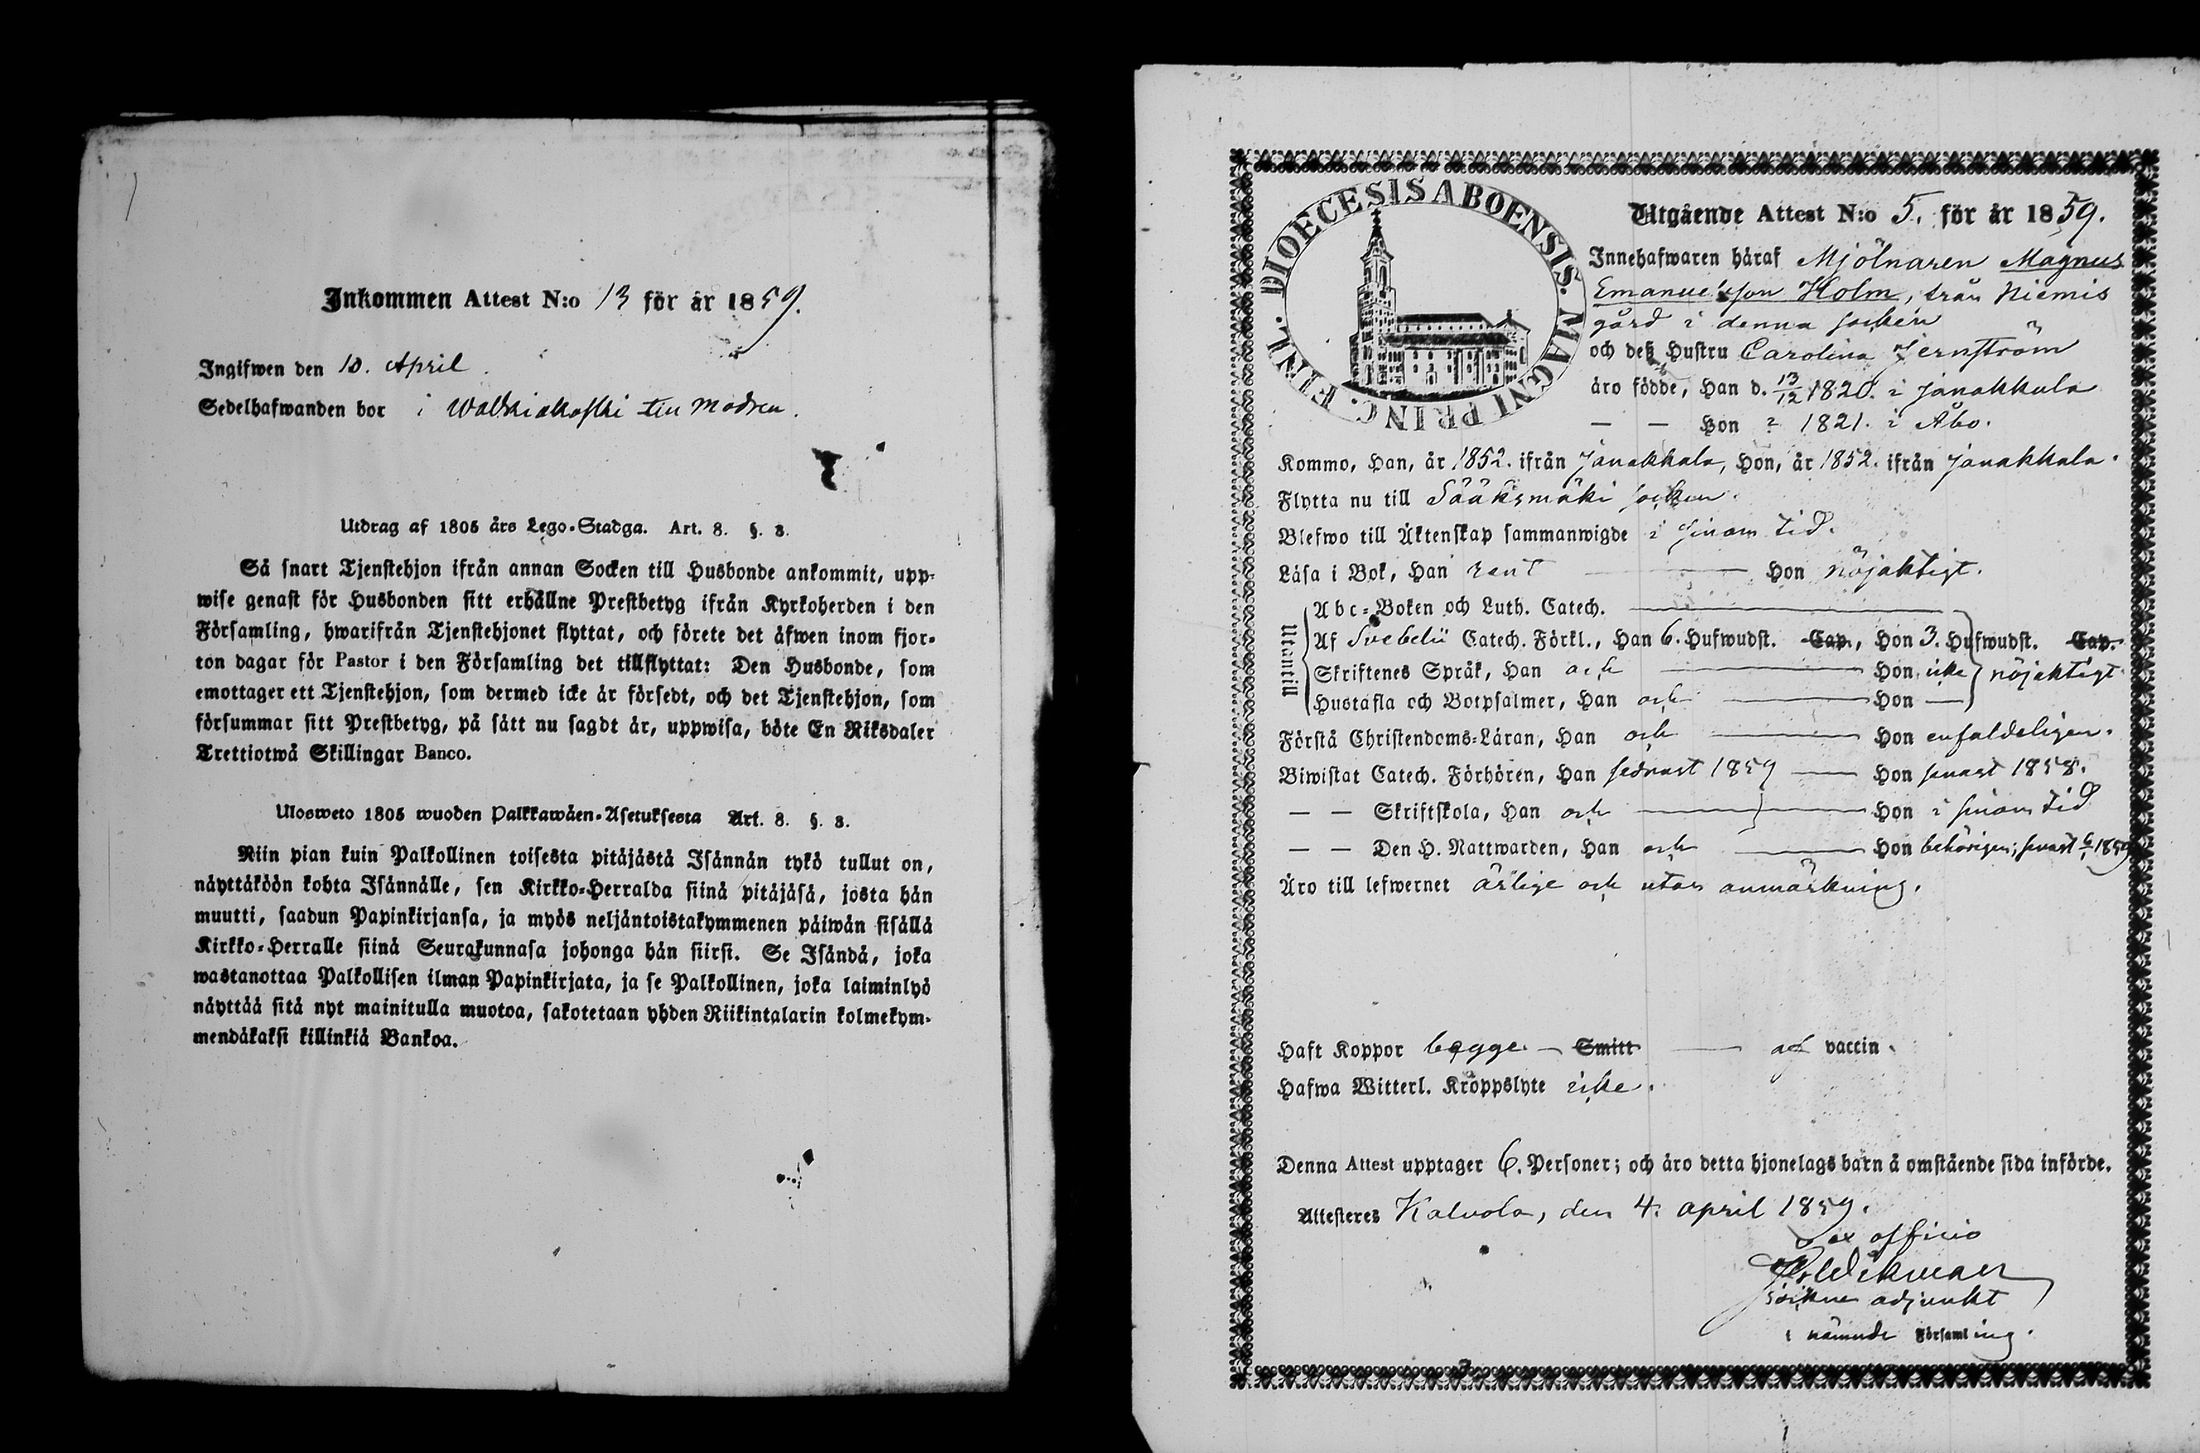 Inkommen Attest N:o 13 för år 1859.
Ingifwen den 10. April.
Sedelhafwanden bor i Walkiakoski
Utdrag af 1805 års Lego-Stadga. Art. 8. §. 3.
Så snart Tjenstehjon ifrån annan Socken till Husbonde ankommit, upp-
wise genast för Husbonden sitt erhållne Prestbetyg ifrån Kyrkoherden i den
Församling, hwarifrån Tjenstehjonet flyttat, och förete det äfwen inom fjor-
ton dagar för Pastor i den Församling det tillflyttat: Den Husbonde, som
emottager ett Tjenstehjon, som dermed icke är försedt, och det Tjenstehjon, som
försummar sitt Prestbetyg, på sätt nu sagdt är, uppwisa, böte En Riksdaler
Trettiotwå Skillingar Banco.
Ulosweto 1805 wuoden Palkkawäen-Asetuksesta Art. 8. §. 3.
Niin pian kuin Palkollinen toisesta pitäjästä Isännän tykö tullut on,
näyttäköön kohta Isännälle, sen Kirkko-Herralda siinä pitäjäsä, josta hän
muutti, saadun Papinkirjansa, ja myös neljäntoistakymmenen päiwän sisällä
Kirkko-Herralle siinä Seurakunnasa johonga hän siirsi. Se Isändä, joka
wastanottaa Palkollisen ilman Papinkirjata, ja se Palkollinen, joka laiminlyö
näyttää sitä nyt mainitulla muotoa, sakotetaan yhden Riikintalarin kolmekym-
mendäkaksi killinkiä Bankoa.
DIOECESIS ABOENSIS. MAGNI PRINC. FINL.
Utgående Attest N:o 5. för år 1859.
Innehafwaren häraf Mjölnaren Magnus
Emanuelsson Holm, från Niemis
gård i denna socken
och deß Hustru Carolina Jernström
äro födde, Han d. 13/12 1820. i Janakkala
— — Hon 1821. i Åbo.
Kommo, Han, år 1852. ifrån Janakkala, Hon, år 1852. ifrån Janakkala.
Flytta nu till Sääksmäki socken.
Blefwo till Äktenskap sammanwigde i sinom tid.
Läsa i Bok, Han rent — Hon nöjaktigt.
Utantill
Abc-Boken och Luth. Catech. —
Af Svebelii Catech. Förkl., Han 6. Hufwudst. Cap., Hon 3. Hufwudst. Cap.
Skriftenes Språk, Han och — Hon icke nöjaktigt
Hustafla och Botpsalmer, Han och — Hon —
Förstå Christendoms-Läran, Han och — Hon enfaldeligen.
Biwistat Catech. Förhören, Han sednast 1859 — Hon senast 1858.
— — Skriftskola, Han och — Hon i sinom tid
— — Den H. Nattwarden, Han och — Hon behörigen; senast 1859
Äro till lefwernet ärlige och utan anmärkning.
Haft Koppor begge — Smitt — af vaccin.
Hafwa Witterl. Kroppslyte icke.
Denna Attest upptager 6. Personer; och äro detta hjonelags barn å omstående sida införde.
Attesteres Kalvola, den 4. april 1859.
ex officio
sockne adjunkt
i nämnde Församling.